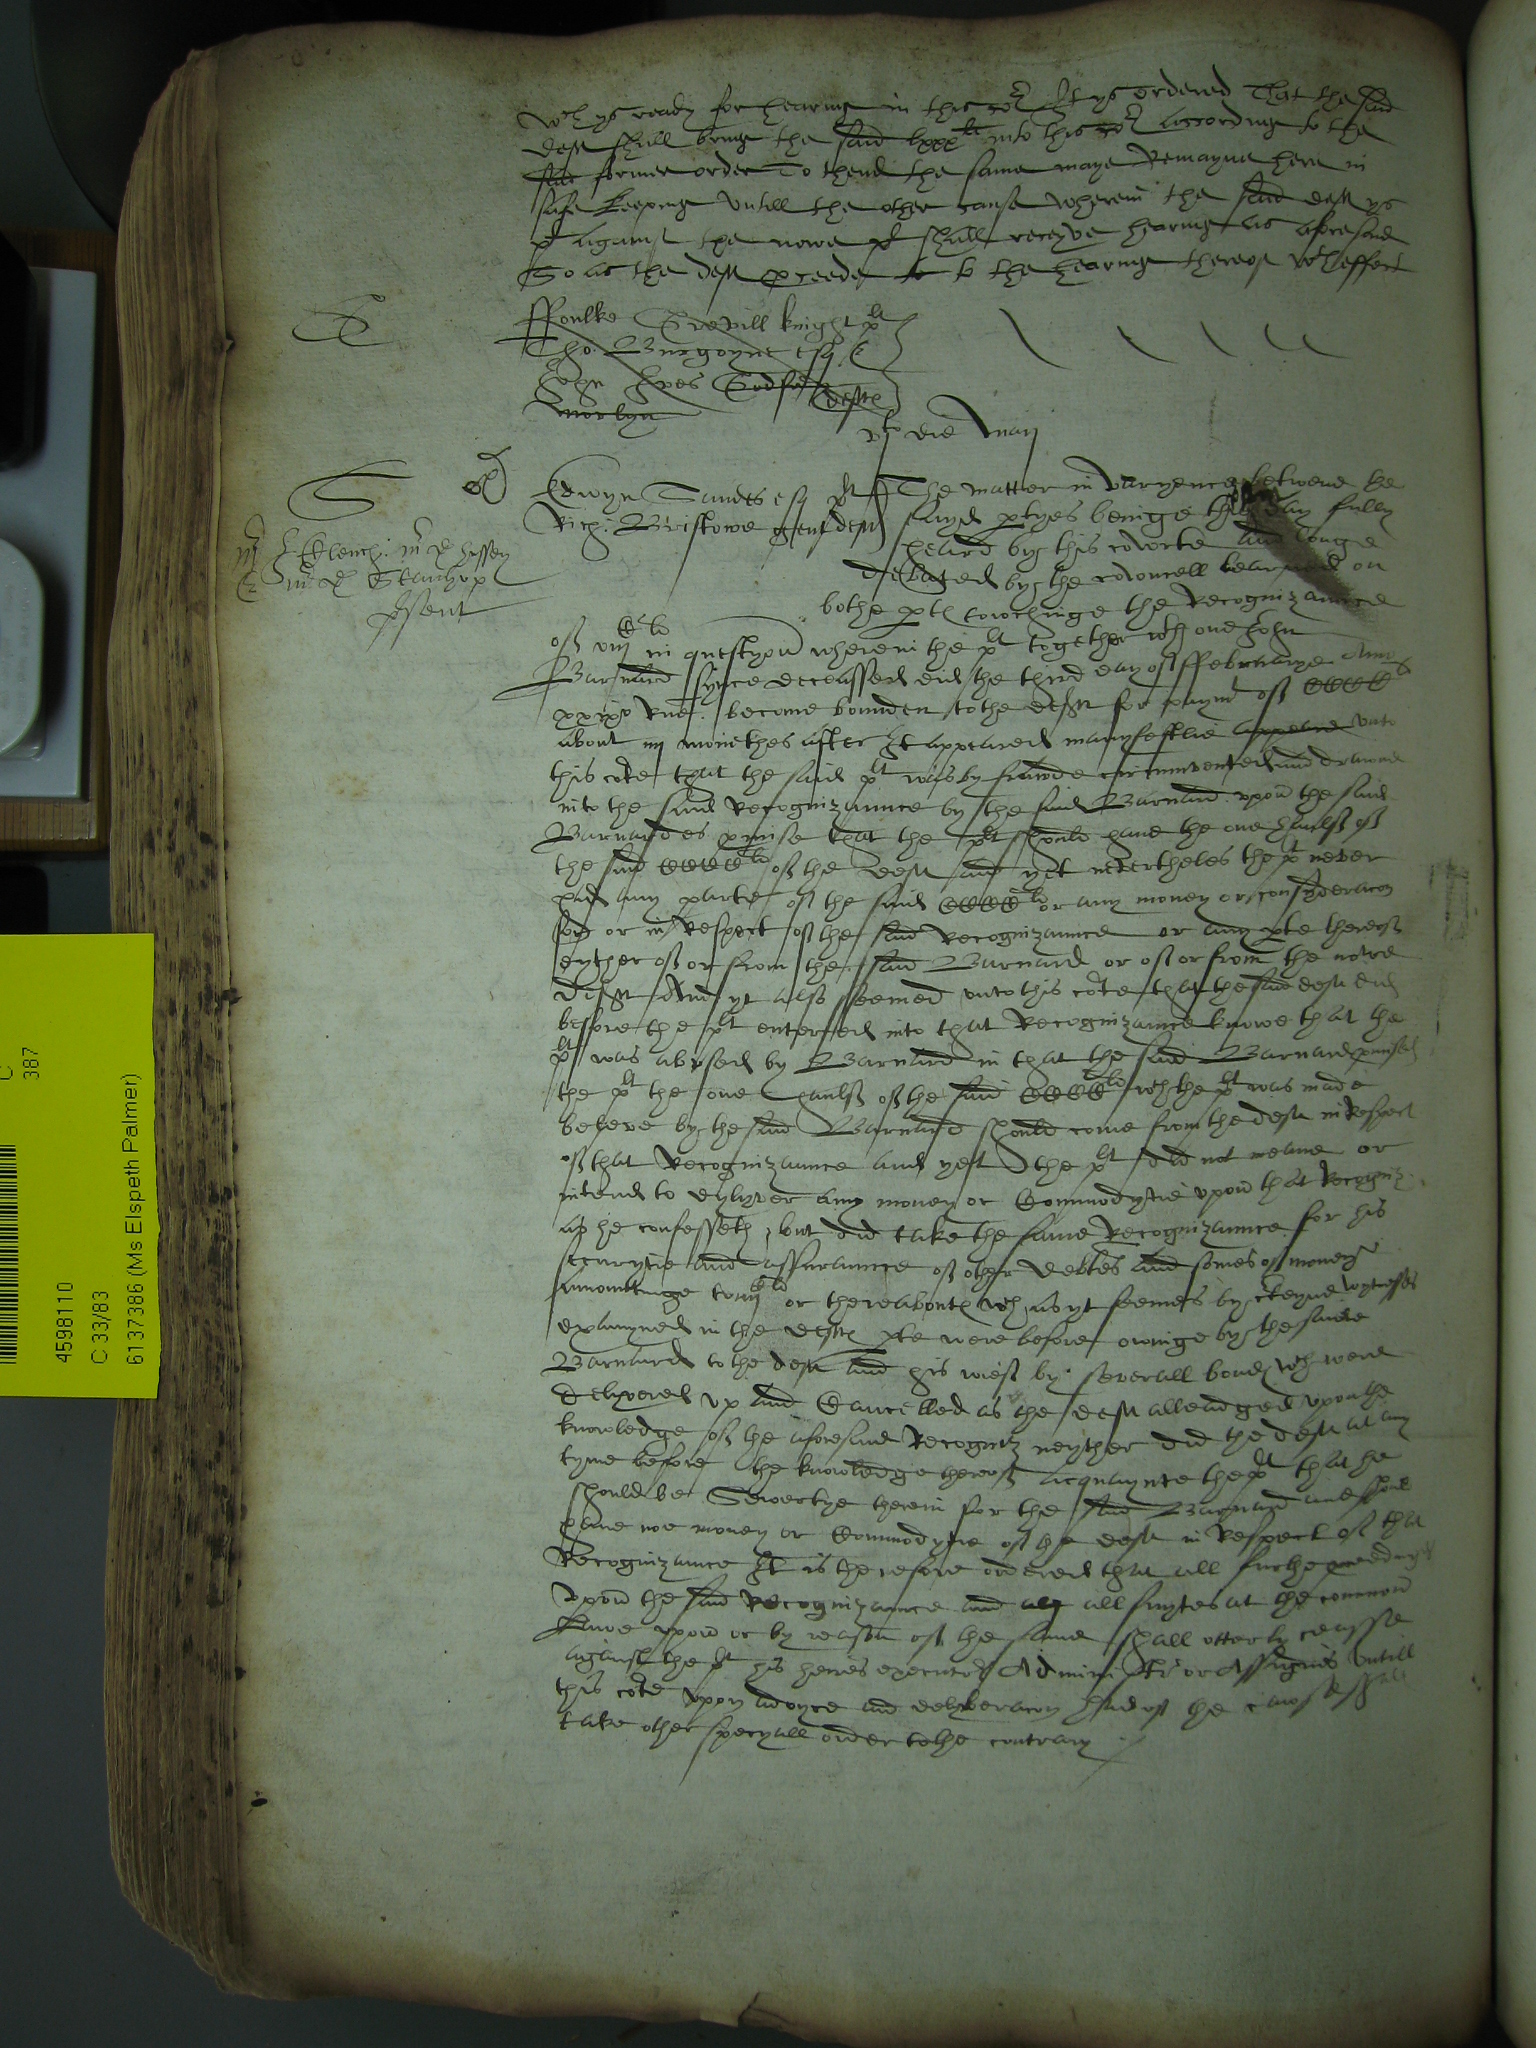 wch ys ready for hearing in this cot It ys ordered That the said
deft shall bring the said lxxx li into this cot according to the
said former order To thend the same maye Remayne here in
safe keeping untill the other cause wherein the said deft ys
pl against the nowe pl shall receyve hearing as aforesaid
So as the deft pceede to the hearing thereof wth effect
ffoulke Grevill knight plt
Tho. Burgoyne esq
John Ives
deftes
die Maij
Edwyn Sandes esq plt
Rich: Bristowe gent deft
The matter in varyence betwene the
sayd ptyes beinge this day fully
heard by this courte and longe
debated by the councell learned on
bothe ptes towchinge the Recognizaunce
Clench
Stanhop
psent
of viij C li in questyon wherein the plt together wth one John
Barnard synce deceassed did the third day of ffebruarye Anno
xxixo Rne. become bounden to the deft for paymt of CCCC li
about iiij monethes after It appeared manyfestlie appeare unto
this cote that the said plt was by frawde circumvented and drawne
into the said Recognizaunce by the said Barnard upon the said
Barnardes pmise that the plt should have the one haulf of
the said CCCC li of the deft and yet nevertheles the plt never
had any parte of the said CCCC li or any money or consyderacon
for or in Respect of the said Recognizaunce or any pte thereof
eyther of or from the said Barnard or of or from the nowe
deft And yt also seemed unto this cote that the said deft did
before the plt entered into that Recognizaunce knowe that the
plt was abused by Barnard in that the said Barnard pmised
the plt the one haulf of the said CCCC li wch the plt was made
beleve by the said Barnard should come from the deft in Respect
of that Recognizaunce and yet the plt did not meane or
intend to delyver any money or Commodytie upon that Recogniz
as he confesseth, but did take the same Recognizaunce for his
securytie and assuraunce of other debtes and somes of money
amountinge to iiij C li or thereaboutes wch as yt seemes by wytnesses
examyned in the deftes pte were before owinge by the saide
Barnard to the deft and his wief by severall bondes wch were
delyvered up and Cancelled as the deft alleadged upon the
knowledge of the aforesaid Recogniz neyther did the deft at any
tyme before the knowledge thereof acquaynte the plt that he
should be Suertye therein for the said Barnard and should
have noe money or Commodytie of the deft in Respect of that
Recognizaunce It is therefore ordered that all further pceedings
upon the said Recognizaunce and all suytes at the common
Lawe upon or by reason of the same shall utterly ceasse
against the plt his heires executors Administr or Assignes Untill
this cote upon advyce and delyberacon had of the cause shall
take other specyall order to the contrary
4598110
C 33/83
6137386 (Ms Elspeth Palmer)
C
387